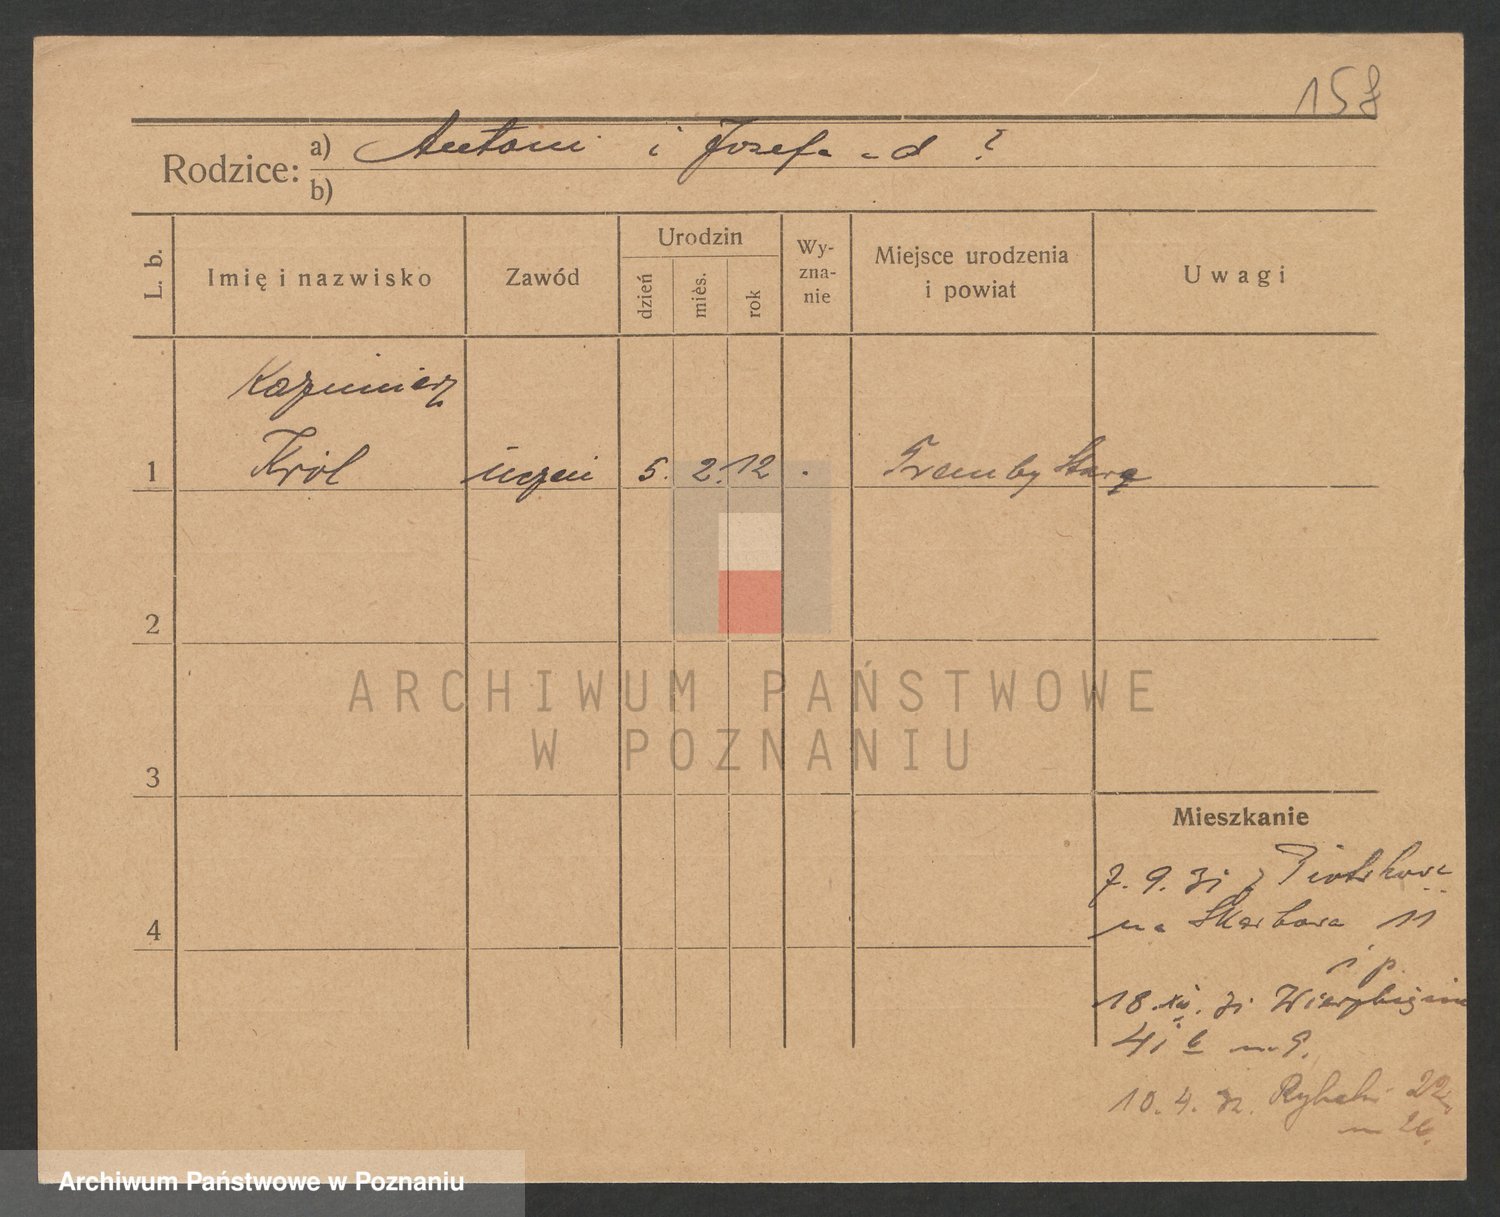 158
Rodzice: a) Antoni i Józefa ?
b)
L. b.
Imię i nazwisko
Zawód
Urodzin
dzień
mies.
rok
Wy-
zna-
nie
Miejsce urodzenia
i powiat
Uwagi
Kazimierz
1 Król uczeń 5. 2. 12
2
3
4
ARCHIWUM PAŃSTWOWE
W POZNANIU
Mieszkanie
7. 9. 31 z
na Skarbowa 11
1 p.
18. XII. 31 Wierzbięcice
41 b m 9.
10. 4. 32. Rybaki 22
m 26.
Archiwum Państwowe w Poznaniu